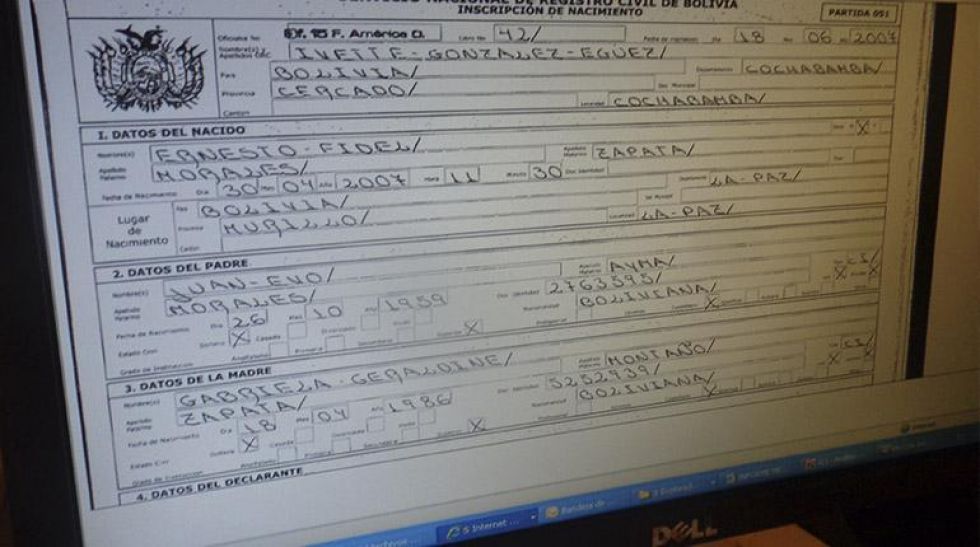 SERVICIO NACIONAL DE REGISTRO CIVIL DE BOLIVIA
INSCRIPCIÓN DE NACIMIENTO
PARTIDA 051
Oficialia No F. América O. Libro No 42/ Dia 18 Mes 06 2007
Nombre(s) y Apellidos ORC IVETTE-GONZALEZ-EGUEZ/
País BOLIVIA/ Departamento COCHABAMBA/
Provincia CERCADO/ Sec Municipal
Cantón Localidad COCHABAMBA/
1. DATOS DEL NACIDO
Nombre(s) ERNESTO-FIDEL/ X
Apellido Paterno MORALES/ Apellido Materno ZAPATA/
Fecha de Nacimiento Dia 30 Mes 04 Año 2007 Hora 11 Minuto 30 Doc Identidad
Lugar de Nacimiento
País BOLIVIA/ Departamento LA-PAZ/
Provincia MURILLO/ Sec Municipal
Cantón Localidad LA-PAZ/
2. DATOS DEL PADRE
Nombre(s) JUAN-EVO/
Apellido Paterno MORALES/ Apellido Materno AYMA/ CI/
Fecha de Nacimiento Dia 26 Mes 10 Año 1959 Doc Identidad 2763595/ X
Estado Civil Soltero X Casado Divorciado Viudo Nacionalidad BOLIVIANA/
Grado de Instrucción Analfabeto Primaria Secundaria Superior X Profesional X
3. DATOS DE LA MADRE
Nombre(s) GABRIELA-GERALDINE/
Apellido Paterno ZAPATA/ Apellido Materno MONTAÑO/ CI/
Fecha de Nacimiento Dia 18 Mes 04 Año 1986 Doc Identidad 5252939/ X
Estado Civil Soltera X Casada Divorciada Viuda Nacionalidad BOLIVIANA/
Grado de Instrucción Analfabeto Primaria Secundaria Superior X Profesional X
4. DATOS DEL DECLARANTE
Internet
5 Internet ...
Bandeja de ...
DELL